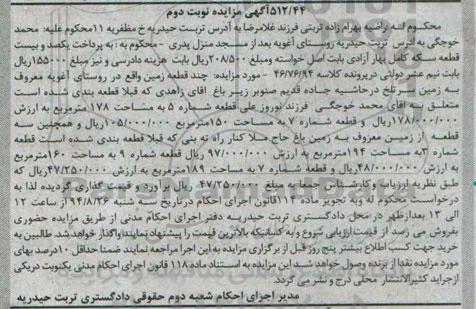 ۵۱۲/۴۴آگهی مزایده نوبت دوم
محکوم له راضیه بهرام زاده تربتی فرزند غلامرضا به آدرس تربت حیدریه خ مظفریه ۱۱محکوم علیه: محمد
خوجگی به آدرس تربت حیدریه روستای آغویه بعد از مسجد منزل پدری - محکوم به: به پرداخت یکصد و بیست
قطعه سکه کامل بهار آزادی بابت اصل خواسته ومبلغ ۲۰۸/۵۰۰ریال بابت هزینه دادرسی و نیز مبلغ ۱۵۵/۰۰۰ریال
بابت نیم عشر دولتی درپرونده کلاسه ۴۶/۷۶/۹۴ - مورد مزایده: چند قطعه زمین واقع در روستای آغویه معروف
به زمین سرتلخ درحاشیه جاده قدیم صنوبر زیر باغ اقای زاهدی که قبلا قطعه بندی شده است
متعلق به اقای محمد خوجگی فرزند نوروز علی قطعه شماره ۵ به مساحت ۱۷۸ مترمربع به ارزش
۱۷۸/۰۰۰/۰۰۰ریال و قطعه شماره ۷ به مساحت ۱۵۰مترمربع ۱۰۵/۰۰۰/۰۰۰ریال و همچنین سه
قطعه از زمین معروف به زمین باغ حاج ملا کنار راه ته بنی که قبلا قطعه بندی شده است قطعه
شماره ۳به مساحت ۱۹۴مترمربع به ارزش ۹۷/۰۰۰/۰۰۰ ریال قطعه شماره ۹ به مساحت ۱۶۰مترمربع
به ارزش ۴۸/۰۰۰/۰۰۰ریال و قطعه شماره ۷ به مساحت ۱۸۹مترمربع به ارزش ۴۷/۲۵۰/۰۰۰ریال که
طبق نظریه ارزیاب وکارشناس جمعا به مبلغ ۴۷/۲۵۰/۰۰۰ ریال برآورد و قیمت گذاری گردیده لذا به
درخواست محکوم له وبه تجویز ماده ۱۱۴قانون اجرای احکام درتاریخ سه شنبه ۹۴/۸/۲۶ از ساعت ۱۲
الی ۱۳ بعدازظهر در محل دادگستری تربت حیدریه دفتر اجرای احکام مدنی از طریق مزایده حضوری
بفروش می رسد از قیمت ارزیابی شروع وبه کسانیکه بالاترین قیمت را پیشنهاد نمایند واگذار خواهد شد. طالبین به
خرید جهت کسب اطلاع بیشتر پنج روز قبل از برگزاری مزایده به این اجرا مراجعه نمایند ضمنا حداقل ۱۰درصد بهای
مورد مزایده نقدا از برنده وصول خواهد شد این مزایده به استناد ماده ۱۱۸ قانون اجرای احکام مدنی یکنوبت دریکی
ازجراید کثیرالانتشار محلی درج و نشر می گردد.
مدیر اجرای احکام شعبه دوم حقوقی دادگستری تربت حیدریه